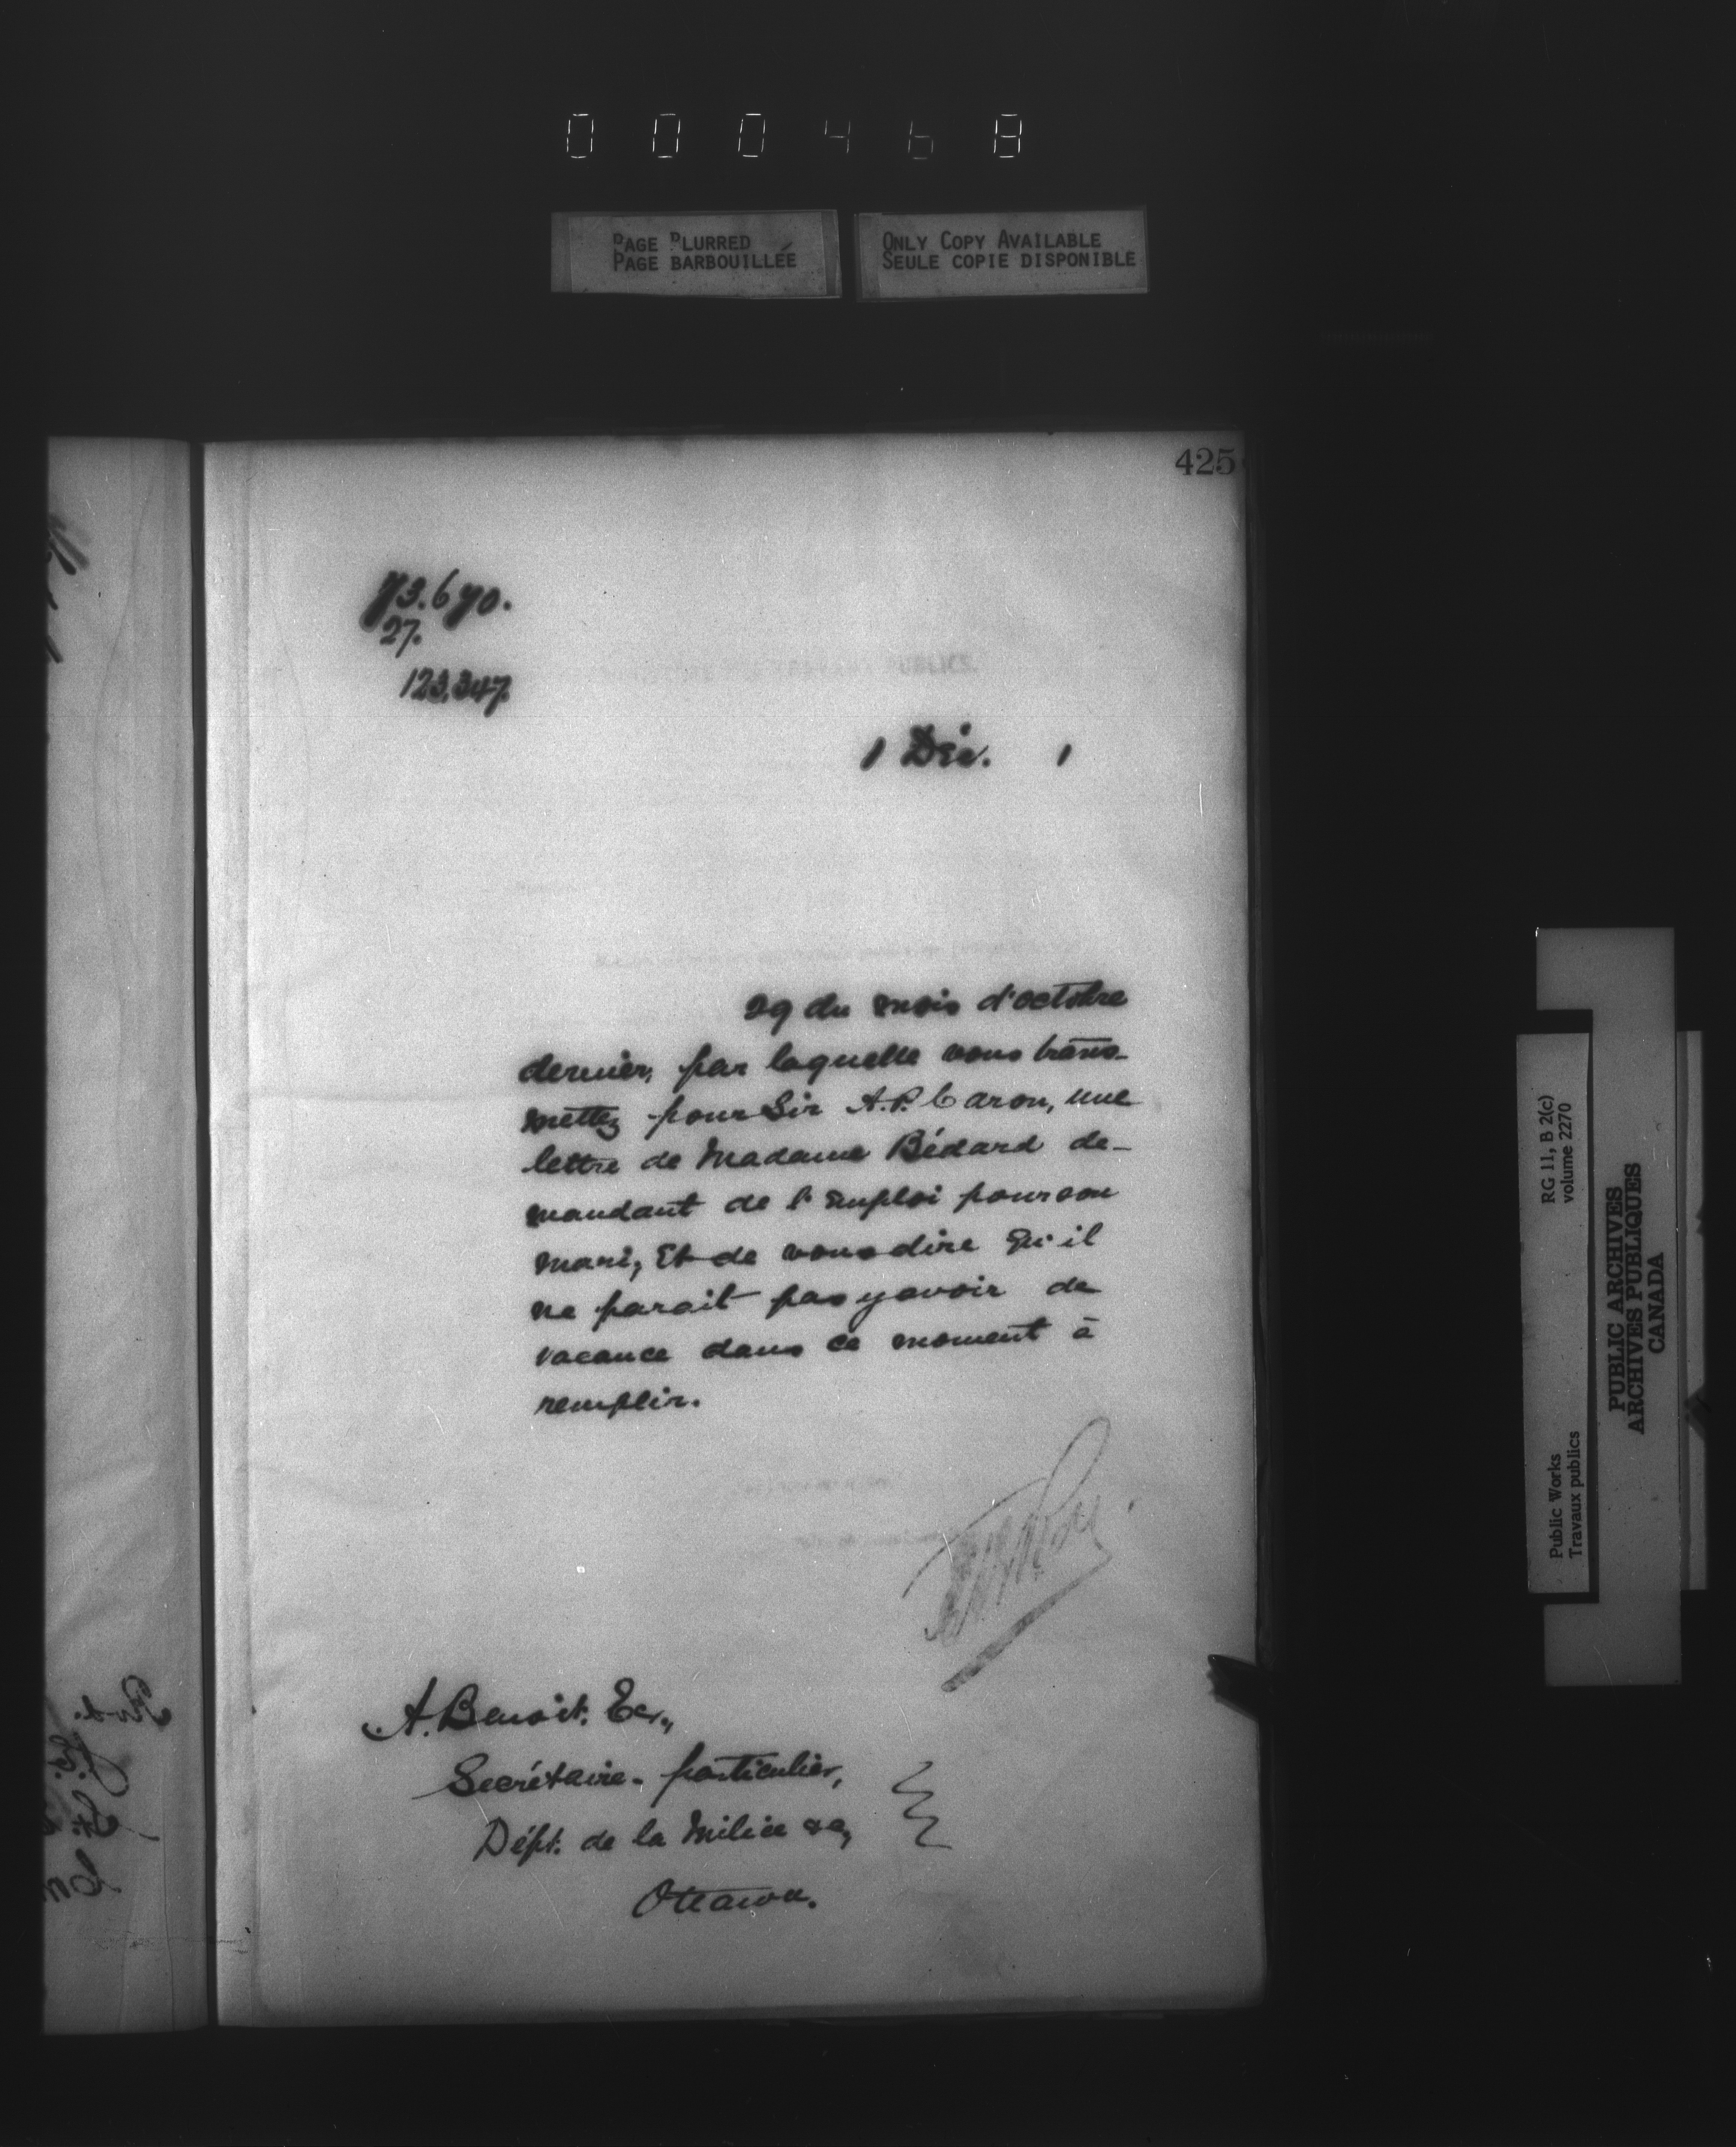 000468
PAGE BLURRED
PAGE BARBOUILLÉE
ONLY COPY AVAILABLE
SEULE COPIE DISPONIBLE
425
73.670.
27.
123,347.
PUBLICS.
1 Déc. 1
29 du mois d'octobre
dernier, par laquelle vous trans-
mettez pour Sir A. P. Caron, une
lettre de Madame Bédard de-
mandant de l'emploi pour son
mari, Et de vous dire Qu'il
ne parait pas y avoir de
vacance dans ce moment à
remplir.
A. Benoit, Ecr.,
Secrétaire-particulier,
Dépt. de la Milice &c,
Ottawa.
Public Works
Travaux publics
RG 11, B 2(c)
volume 2270
PUBLIC ARCHIVES
ARCHIVES PUBLIQUES
CANADA